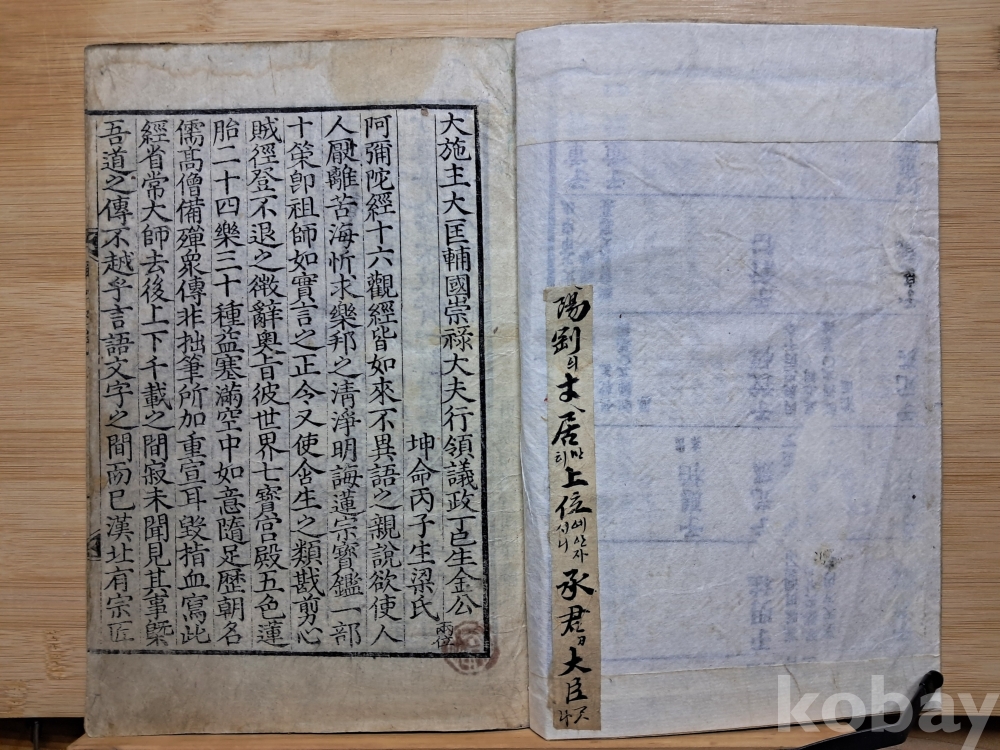 大施主大匡輔國崇祿大夫行領議政丁巳生金公兩位
坤命丙子生梁氏
阿彌陀經十六觀經皆如來不異語之親說欲使人
人厭離苦海忻求樂邦之淸淨明誨蓮宗寶鑑一部
十策卽祖師如實言之正令又使含生之類戡剪心
賊徑登不退之徵辭奧旨彼世界七寶宮殿五色蓮
胎二十四樂三十種益塞滿空中如意隨足歷朝名
儒高僧備殫衆傳非拙筆所加重宣耳毁指血寫此
經省常大師去後上下千載之間寂未聞見其事槩
吾道之傳不越乎言語文字之間而已漢址有宗匠
陽劉의 居 上位 시니 承君 大臣
kobay